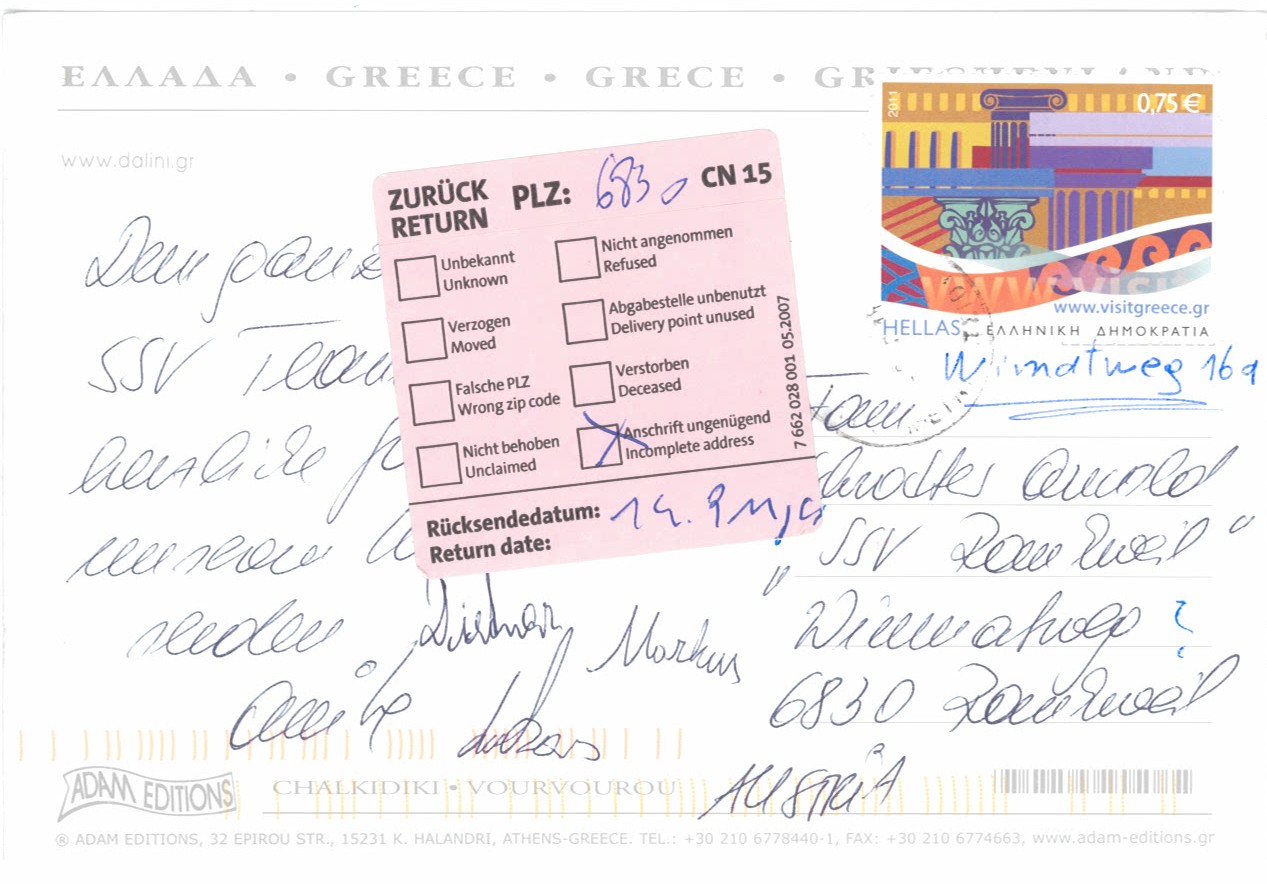 ΕΛΛΑΔΑ • GREECE • GRECE • GRIECHENLAND
www.dalini.gr
2011
0,75 €
www.visitgreece.gr
HELLAS
ΕΛΛΗΝΙΚΗ ΔΗΜΟΚΡΑΤΙΑ
ZURÜCK
RETURN
PLZ: 6830
CN 15
Unbekannt
Unknown
Verzogen
Moved
Falsche PLZ
Wrong zip code
Nicht behoben
Unclaimed
Nicht angenommen
Refused
Abgabestelle unbenutzt
Delivery point unused
Verstorben
Deceased
Anschrift ungenügend
Incomplete address
7 662 028 001 05.2007
Rücksendedatum: 14.9
Return date:
Dem
SSV Team
herzliche
unserem
senden
Dietmar
Markus
Lukas
16a
"SSV Rankweil"
?
6830 Rankweil
AUSTRIA
ADAM EDITIONS
CHALKIDIKI • VOURVOUROU
® ADAM EDITIONS, 32 EPIROU STR., 15231 K. HALANDRI, ATHENS-GREECE. TEL.: +30 210 6778440-1, FAX: +30 210 6774663, www.adam-editions.gr